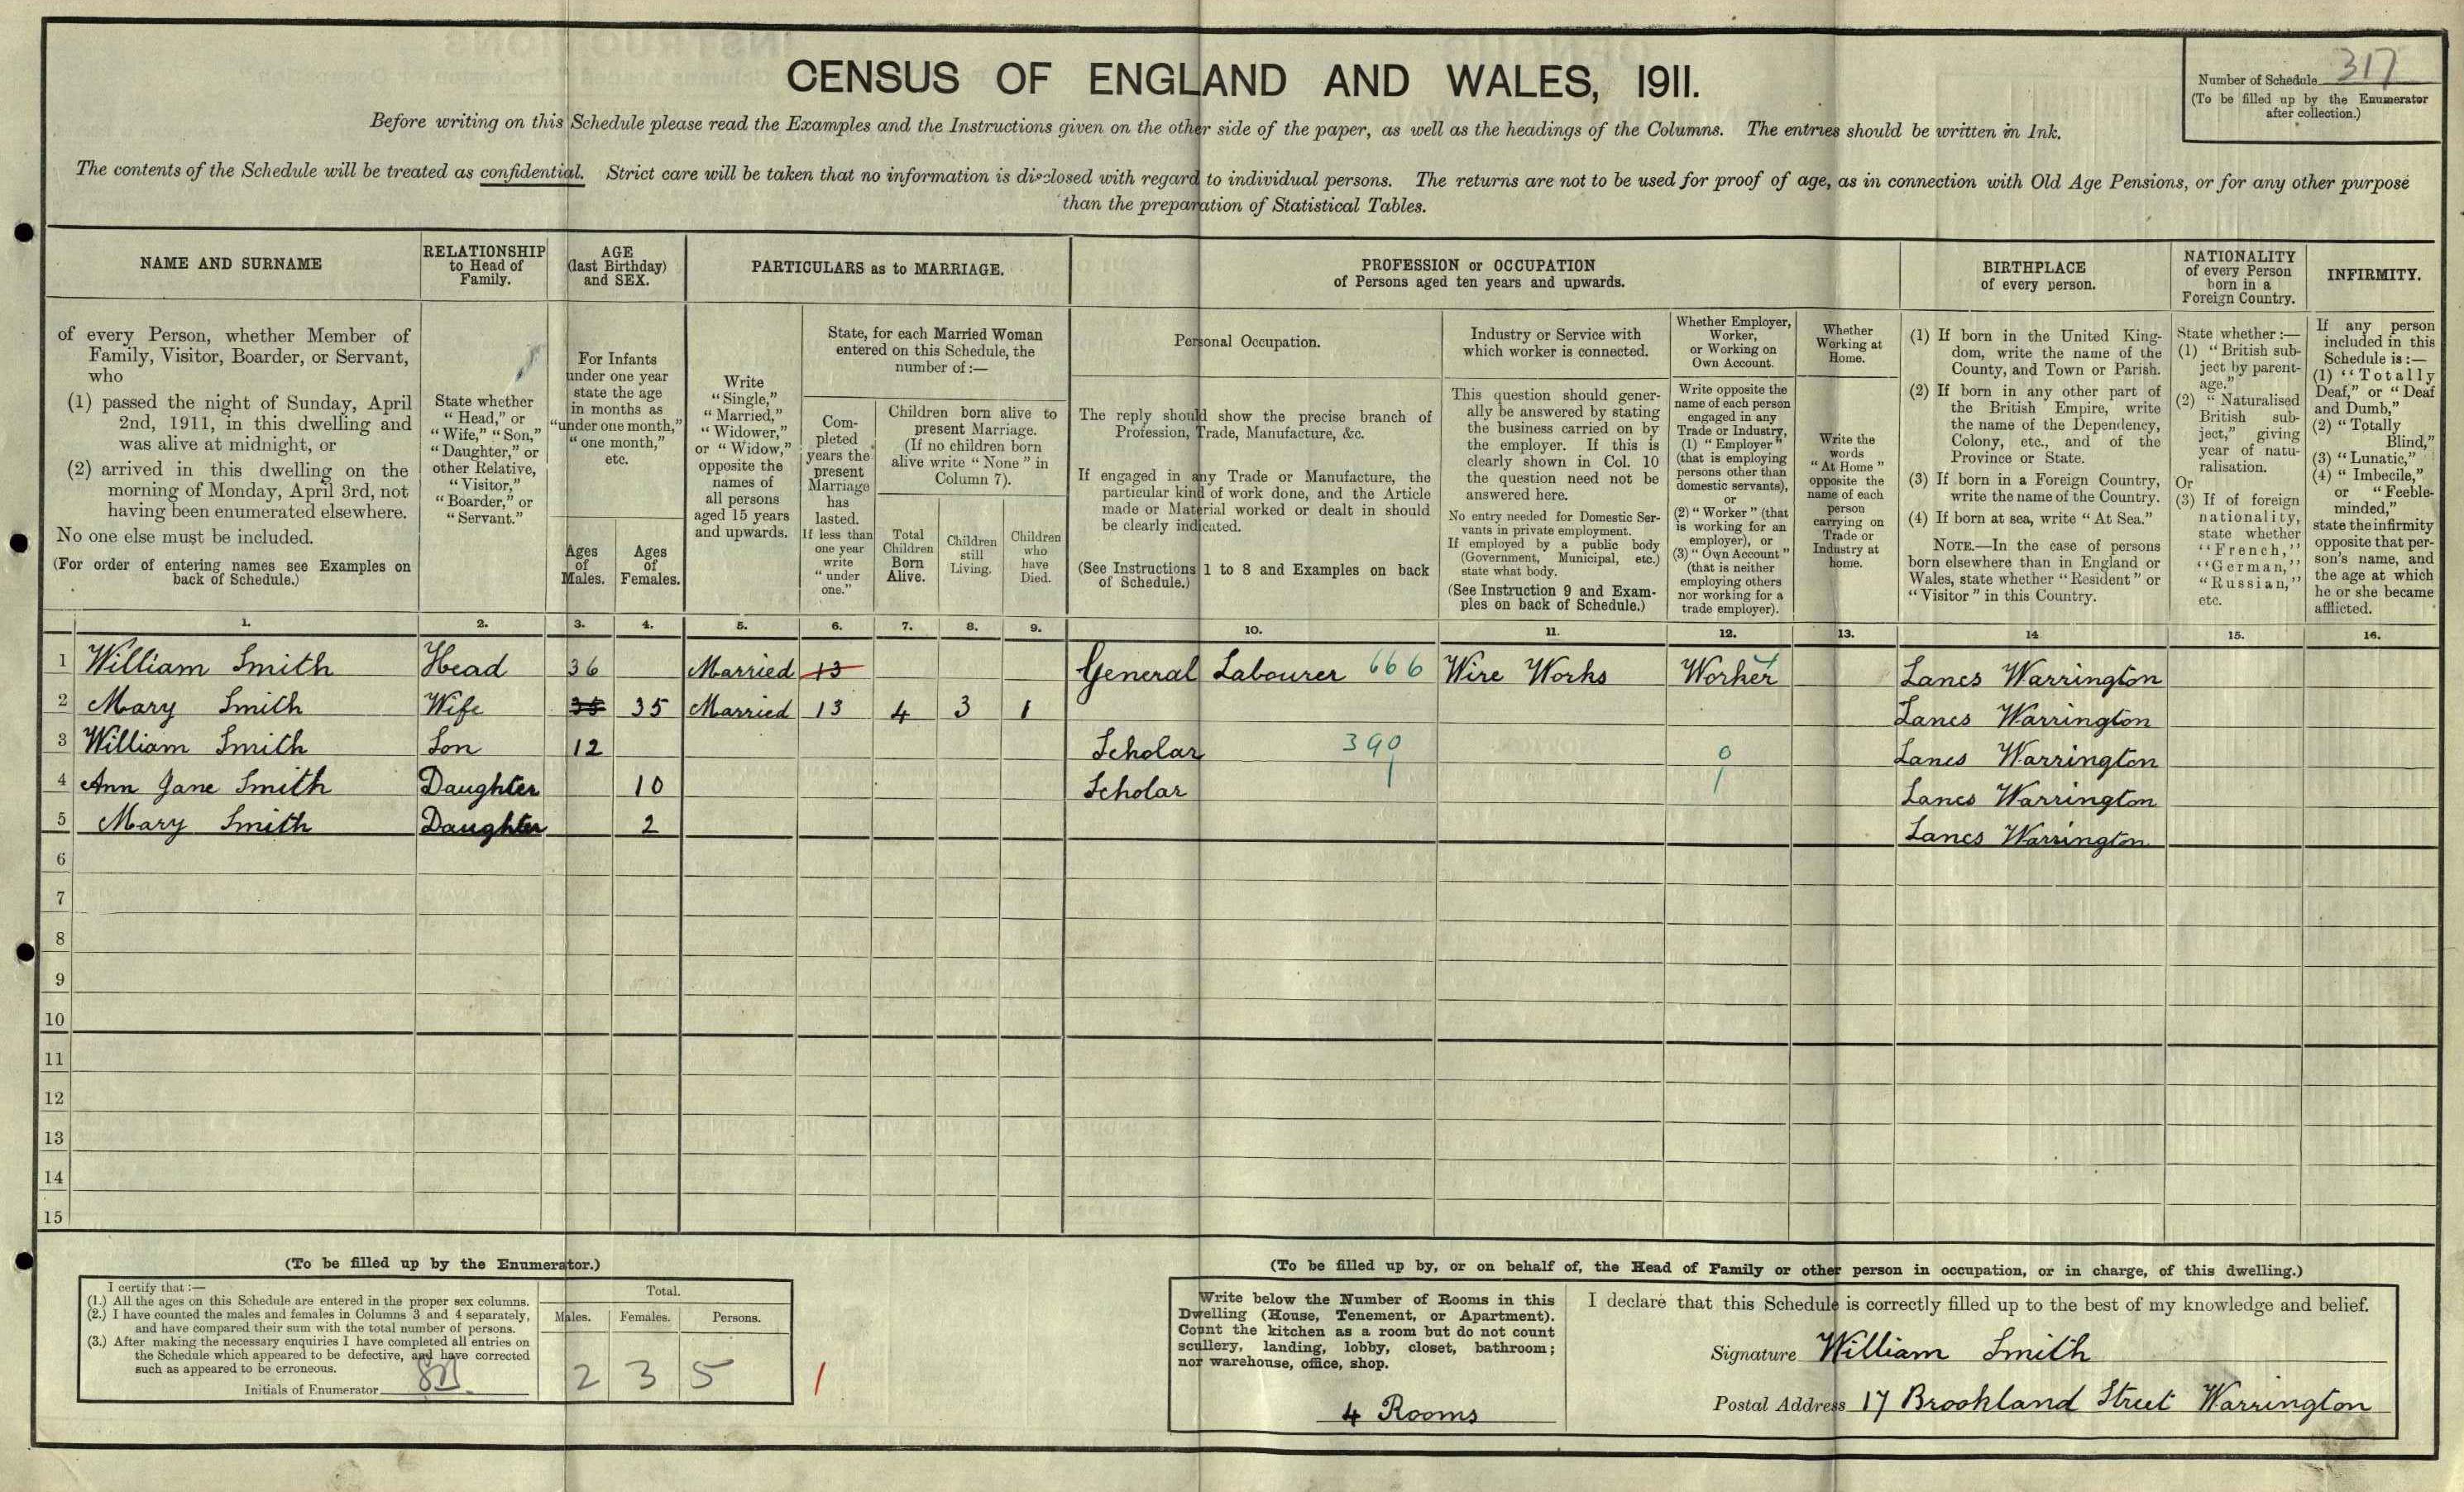 CENSUS OF ENGLAND AND WALES, 1911.
Number of Schedule 317
(To be filled up by the Enumerator
after collection.)
Before writing on this Schedule please read the Examples and the Instructions given on the other side of the paper, as well as the headings of the Columns. The entries should be written in Ink.
The contents of the Schedule will be treated as confidential. Strict care will be taken that no information is disclosed with regard to individual persons. The returns are not to be used for proof of age, as in connection with Old Age Pensions, or for any other purpose
than the preparation of Statistical Tables.
NAME AND SURNAME
of every Person, whether Member of
Family, Visitor, Boarder, or Servant,
who
(1) passed the night of Sunday, April
2nd, 1911, in this dwelling and
was alive at midnight, or
(2) arrived in this dwelling on the
morning of Monday, April 3rd, not
having been enumerated elsewhere.
No one else must be included.
(For order of entering names see Examples on
back of Schedule.)
RELATIONSHIP
to Head of
Family.
State whether
"Head," or
"Wife," "Son,"
"Daughter," or
other Relative,
"Visitor,"
"Boarder," or
"Servant."
AGE
(last Birthday)
and SEX.
For Infants
under one year
state the age
in months as
"under one month,"
"one month,"
etc.
Ages
of
Males.
Ages
of
Females.
PARTICULARS as to MARRIAGE.
Write
"Single,"
"Married,"
"Widower,"
or "Widow,"
opposite the
names of
all persons
aged 15 years
and upwards.
State, for each Married Woman
entered on this Schedule, the
number of:—
Com-
pleted
years the
present
Marriage
has
lasted.
If less than
one year
write
"under
one."
Children born alive to
present Marriage.
(If no children born
alive write "None" in
Column 7).
Total
Children
Born
Alive.
Children
still
Living.
Children
who
have
Died.
PROFESSION or OCCUPATION
of Persons aged ten years and upwards.
Personal Occupation.
The reply should show the precise branch of
Profession, Trade, Manufacture, &c.
If engaged in any Trade or Manufacture, the
particular kind of work done, and the Article
made or Material worked or dealt in should
be clearly indicated.
(See Instructions 1 to 8 and Examples on back
of Schedule.)
Industry or Service with
which worker is connected.
This question should gener-
ally be answered by stating
the business carried on by
the employer. If this is
clearly shown in Col. 10
the question need not be
answered here.
No entry needed for Domestic Ser-
vants in private employment.
If employed by a public body
(Government, Municipal, etc.)
state what body.
(See Instruction 9 and Exam-
ples on back of Schedule.)
Whether Employer,
Worker,
or Working on
Own Account.
Write opposite the
name of each person
engaged in any
Trade or Industry,
(1) "Employer"
(that is employing
persons other than
domestic servants),
or
(2) "Worker" (that
is working for an
employer), or
(3) "Own Account"
(that is neither
employing others
nor working for a
trade employer).
Whether
Working at
Home.
Write the
words
"At Home"
opposite the
name of each
person
carrying on
Trade or
Industry at
home.
BIRTHPLACE
of every person.
(1) If born in the United King-
dom, write the name of the
County, and Town or Parish.
(2) If born in any other part of
the British Empire, write
the name of the Dependency,
Colony, etc., and of the
Province or State.
(3) If born in a Foreign Country,
write the name of the Country.
(4) If born at sea, write "At Sea."
NOTE.—In the case of persons
born elsewhere than in England or
Wales, state whether "Resident" or
"Visitor" in this Country.
NATIONALITY
of every Person
born in a
Foreign Country.
State whether:—
(1) "British sub-
ject by parent-
age."
(2) "Naturalised
British sub-
ject," giving
year of natu-
ralisation.
Or
(3) If of foreign
nationality,
state whether
"French,"
"German,"
"Russian,"
etc.
INFIRMITY.
If any person
included in this
Schedule is:—
(1) "Totally
Deaf," or "Deaf
and Dumb,"
(2) "Totally
Blind,"
(3) "Lunatic,"
(4) "Imbecile,"
or "Feeble-
minded,"
state the infirmity
opposite that per-
son's name, and
the age at which
he or she became
afflicted.
1. 2. 3. 4. 5. 6. 7. 8. 9. 10. 11. 12. 13. 14 15. 16.
1 William Smith Head 36 Married 13 General Labourer 666 Wire Works Worker Lancs Warrington
2 Mary Smith Wife 35 35 Married 13 4 3 1 Lancs Warrington
3 William Smith Son 12 Scholar 390 0 Lancs Warrington
4 Ann Jane Smith Daughter 10 Scholar Lancs Warrington
5 Mary Smith Daughter 2 Lancs Warrington
6
7
8
9
10
11
12
13
14
15
(To be filled up by the Enumerator.)
I certify that:—
(1.) All the ages on this Schedule are entered in the proper sex columns.
(2.) I have counted the males and females in Columns 3 and 4 separately,
and have compared their sum with the total number of persons.
(3.) After making the necessary enquiries I have completed all entries on
the Schedule which appeared to be defective, and have corrected
such as appeared to be erroneous.
Initials of Enumerator
Total.
Males. Females. Persons.
2 3 5
1
(To be filled up by, or on behalf of, the Head of Family or other person in occupation, or in charge, of this dwelling.)
Write below the Number of Rooms in this
Dwelling (House, Tenement, or Apartment).
Count the kitchen as a room but do not count
scullery, landing, lobby, closet, bathroom;
nor warehouse, office, shop.
4 Rooms
I declare that this Schedule is correctly filled up to the best of my knowledge and belief.
Signature William Smith
Postal Address 17 Brookland Street Warrington